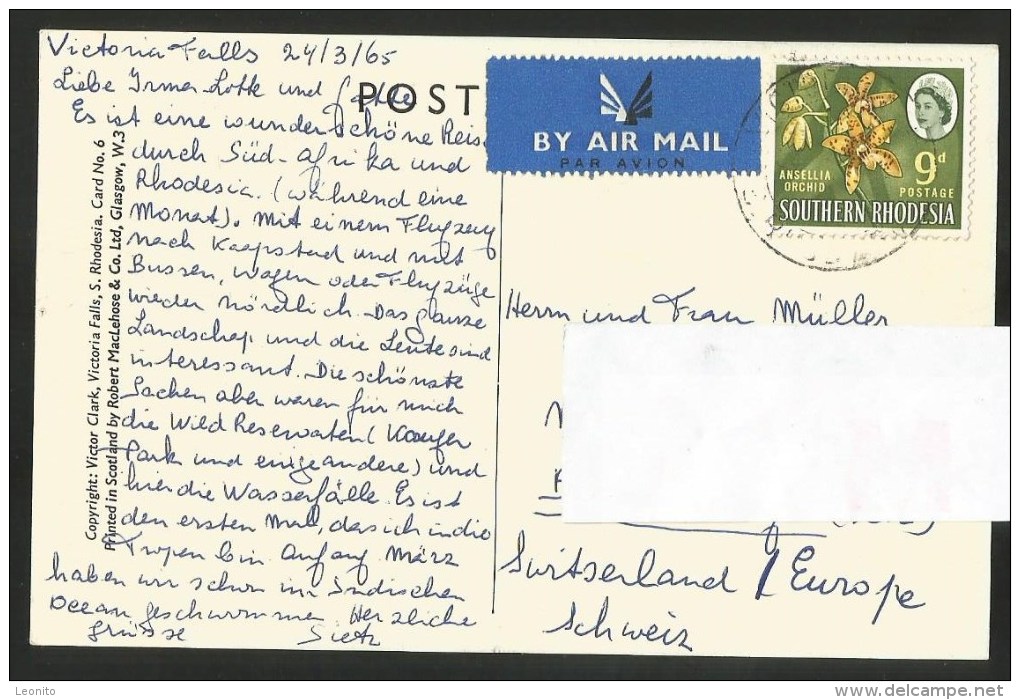 Victoria Falls 24/3/65
Liebe Irma-Lotte und
Es ist eine wunderschöne Reise
durch Süd-Afrika und
Rhodesia. (während eine
Monat). Mit einem Flugzeug
nach Kaapstad und mit
Bussen, wagen oder Flugzüge
wieder nördlich. Das ganze
Landschap und die Leute sind
interessant. Die schönste
Sachen aber waren für mich
die Wild Reservaten (
Park und einige andere) und
hier die Wasserfälle. Es ist
den ersten Mal, das ich in die
Tropen bin. Anfang März
haben wir schon im Indischen
Ocean geschwommen. Herzliche
Grüsse Sietz
Copyright: Victor Clark, Victoria Falls, S. Rhodesia. Card No. 6
Printed in Scotland by Robert MacLehose & Co. Ltd, Glasgow, W.3
POST
BY AIR MAIL
PAR AVION
ANSELLIA
ORCHID
9d
POSTAGE
SOUTHERN RHODESIA
Herrn und Frau Müller
Switserland / Europe
Schweiz
Leonito
delcampe.net